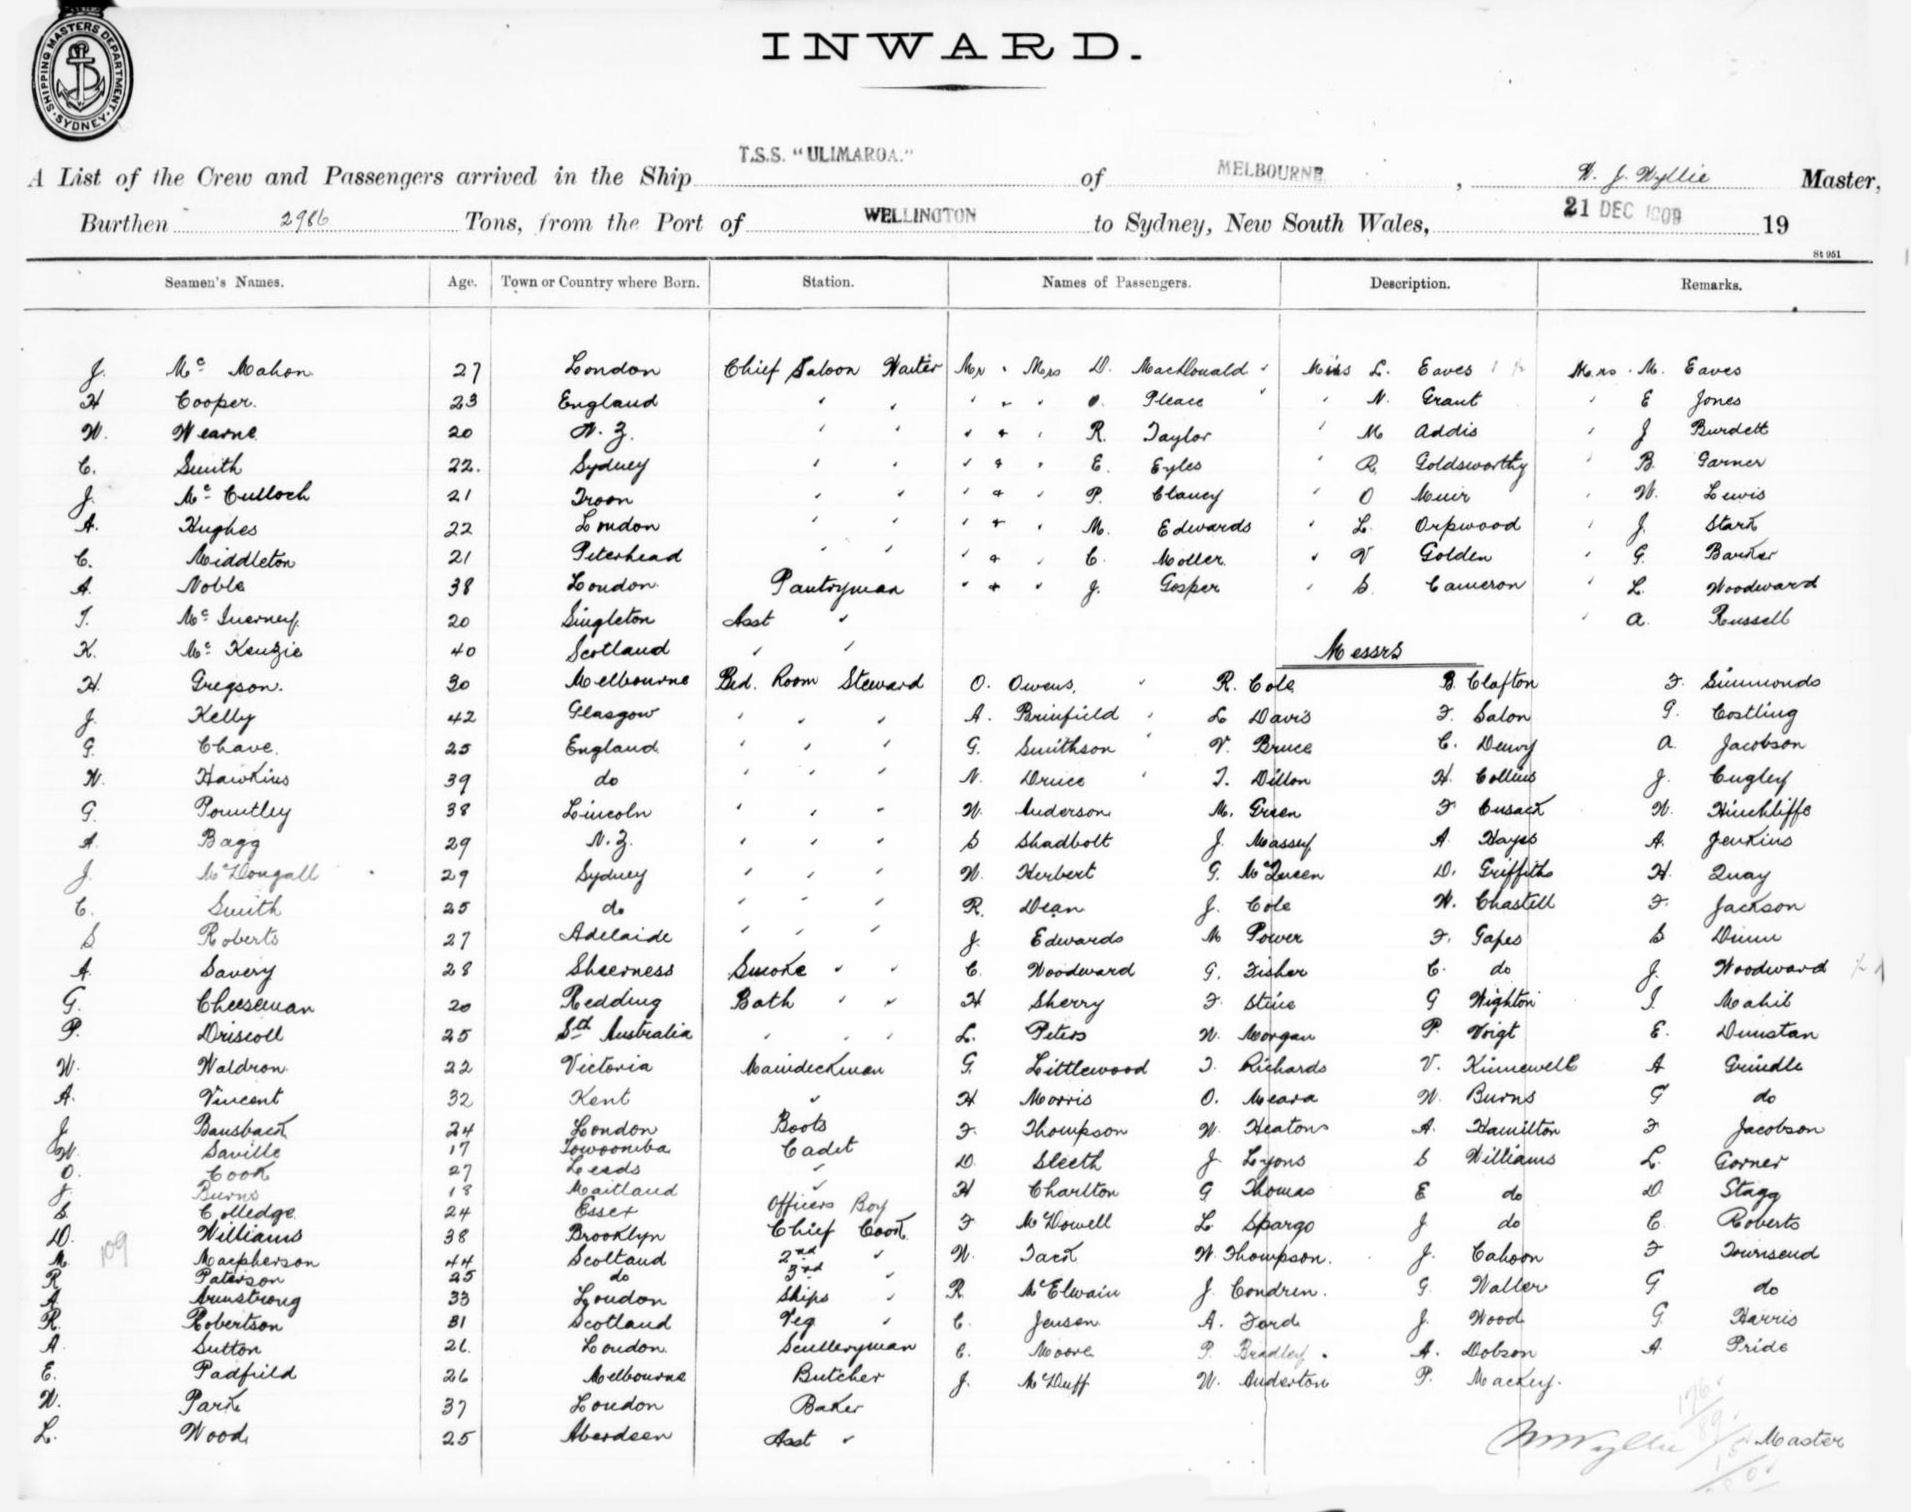 SHIPPING MASTERS DEPARTMENT
SYDNEY
INWARD.
A List of the Crew and Passengers arrived in the Ship T.S.S. "ULIMAROA." of MELBOURNE, W. J. Wyllie Master,
Burthen 2986 Tons, from the Port of WELLINGTON to Sydney, New South Wales, 21 DEC 1909 19
St 951
Seamen's Names. Age. Town or Country where Born. Station. Names of Passengers. Description. Remarks.
J. Mc Mahon 27 London Chief Saloon Waiter Mr & Mrs D. MacDonald Miss L. Eaves Mrs M. Eaves
H Cooper. 23 England " " " " " O. Pleace " N. Grant " E Jones
W. Wearne 20 N.Z. " " " + " R. Taylor " M Addis " J Burdett
C. Smith 22. Sydney " " " + " E. Eyles " R. Goldsworthy " B. Garner
J. Mc Culloch 21 Troon " " " + " P. Clancy " O Muir " W. Lewis
A. Hughes 22 London " " " + " M. Edwards " L. Orpwood " J. Stark
C. Middleton 21 Peterhead " " " + " C. Moller " V Golden " G. Barker
A. Noble 38 London Pantryman " + " J. Gosper " S. Cameron " L. Woodward
T. Mc Inerney 20 Singleton Asst " " A. Russell
K. Mc Kenzie 40 Scotland " " Messrs
H. Gregson. 30 Melbourne Bed. Room Steward O. Owens, R. Cole B. Clafton F. Simmonds
J. Kelly 42 Glasgow " " " A. Brinfield L Davis F. Salon G. Costling
G. Chave. 25 England " " " G. Smithson V. Bruce C. Dewy A. Jacobson
W. Hawkins 39 do " " " N. Druce T. Dillon H. Collins J. Cugley
G. Pountley 38 Lincoln " " " W. Anderson M. Green F Cusack W. Hinchliffe
A. Bagg 29 N.Z. " " " S Shadbolt J. Massey A Hayes A. Jenkins
J. McDougall 29 Sydney " " " W. Herbert G. McQueen D. Griffiths H. Quay
C. Smith 25 do " " " R. Dean J. Cole W. Chastell F. Jackson
S Roberts 27 Adelaide " " " J. Edwards M Power F. Gapes S Dunn
A. Savery 28 Sheerness Smoke " " C. Woodward G. Fisher C. do J. Woodward
G. Cheeseman 20 Redding Bath " " H Sherry F. Stine G Wighton J. Mahil
P. Driscoll 25 Sth Australia " " " L. Peters W. Morgan P. Voigt E. Dunstan
W. Waldron 22 Victoria Maindeckman G. Littlewood T. Richards V. Kinnewell A Grindle
A. Vincent 32 Kent " H Morris O. Meara W. Burns G do
J Bausback 24 London Boots F. Thompson W. Heatons A. Hamilton F Jacobson
W. Saville 17 Towoomba Cadet D Sleeth J Lyons S Williams L. Gorner
O. Cook 27 Leeds "
J. Burns 18 Maitland " H Charlton G Thomas E do D. Stagg
S. Colledge 24 Essex Officers Boy
D. Williams 38 Brooklyn Chief Cook F McDowell L. Spargo J do C. Roberts
109
M. Macpherson 44 Scotland 2nd " W. Tack W. Thompson. J. Cahoon F Townsend
R Paterson 25 do 3rd "
A. Armstrong 33 London Ships " R. McElwain J. Condren. G. Waller G do
R. Robertson 31 Scotland Veg " C. Jensen A. Ford. J. Wood G. Harris
A. Sutton 26. London Sculleryman C. Moore P. Bradley. A. Dobson A. Pride
E. Padfield 26 Melbourne Butcher J. McDuff W. Anderton P. Mackey.
W. Park 37 London Baker
L. Wood 25 Aberdeen Asst " Wyllie Master